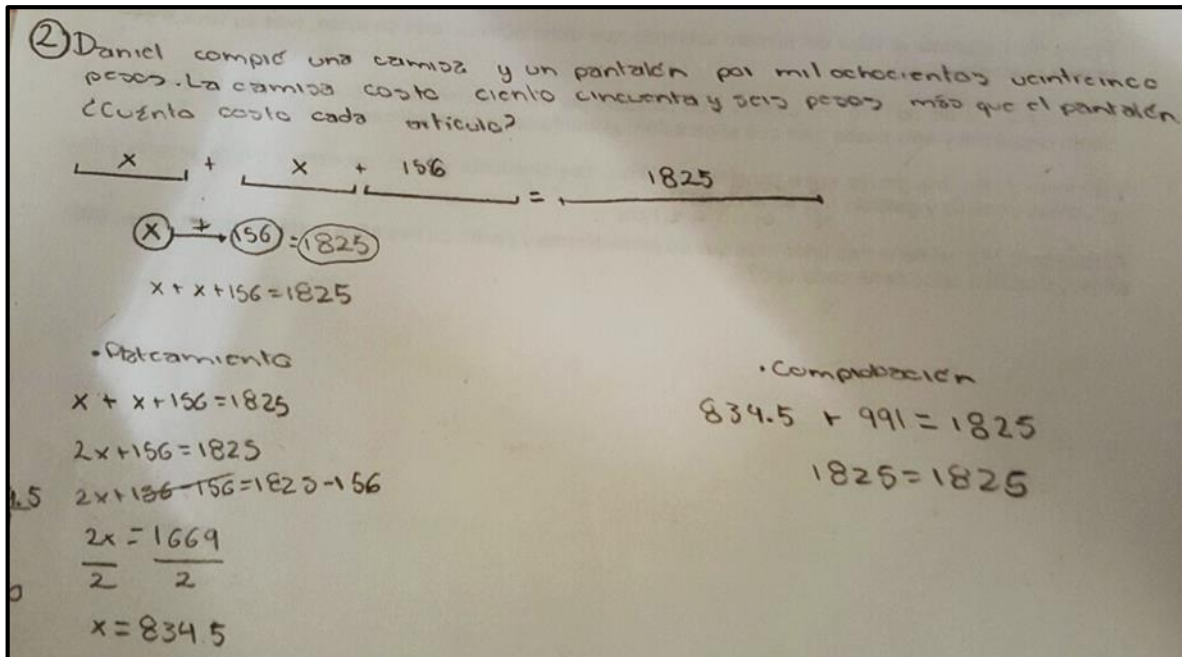 ② Daniel compró una camisa y un pantalón por mil ochocientos veinticinco
pesos. La camisa costo ciento cincuenta y seis pesos más que el pantalón
¿Cuánto costo cada artículo?
x + x + 156 = 1825
x + 156 = 1825
x + x + 156 = 1825
• Plateamiento
x + x + 156 = 1825
2x + 156 = 1825
2x + 156 - 156 = 1825 - 156
2x = 1669
2 2
x = 834.5
• Comprobación
834.5 + 991 = 1825
1825 = 1825